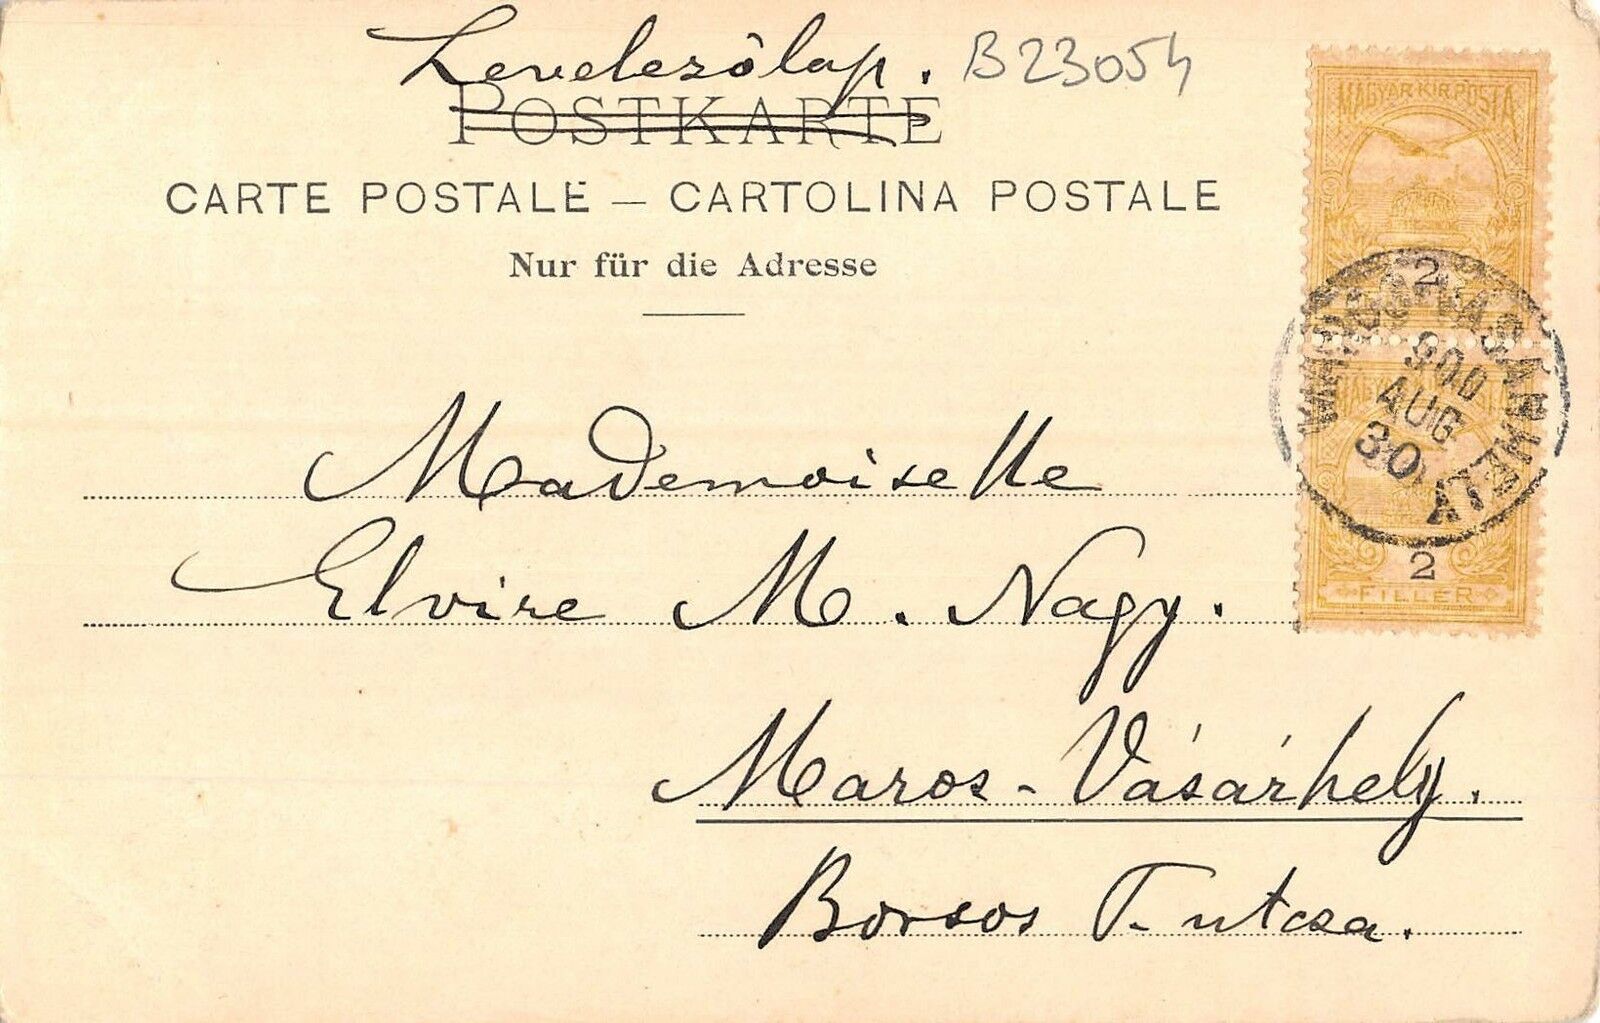 Levelezőlap. B23054
POSTKARTE
CARTE POSTALE – CARTOLINA POSTALE
Nur für die Adresse
MAGYAR KIR. POSTA
2
MAROS-VÁSÁRHELY
900
AUG
30
2
FILLER
Mademoiselle
Elvire M. Nagy.
Maros-Vásárhely.
Borsos T. utcza.